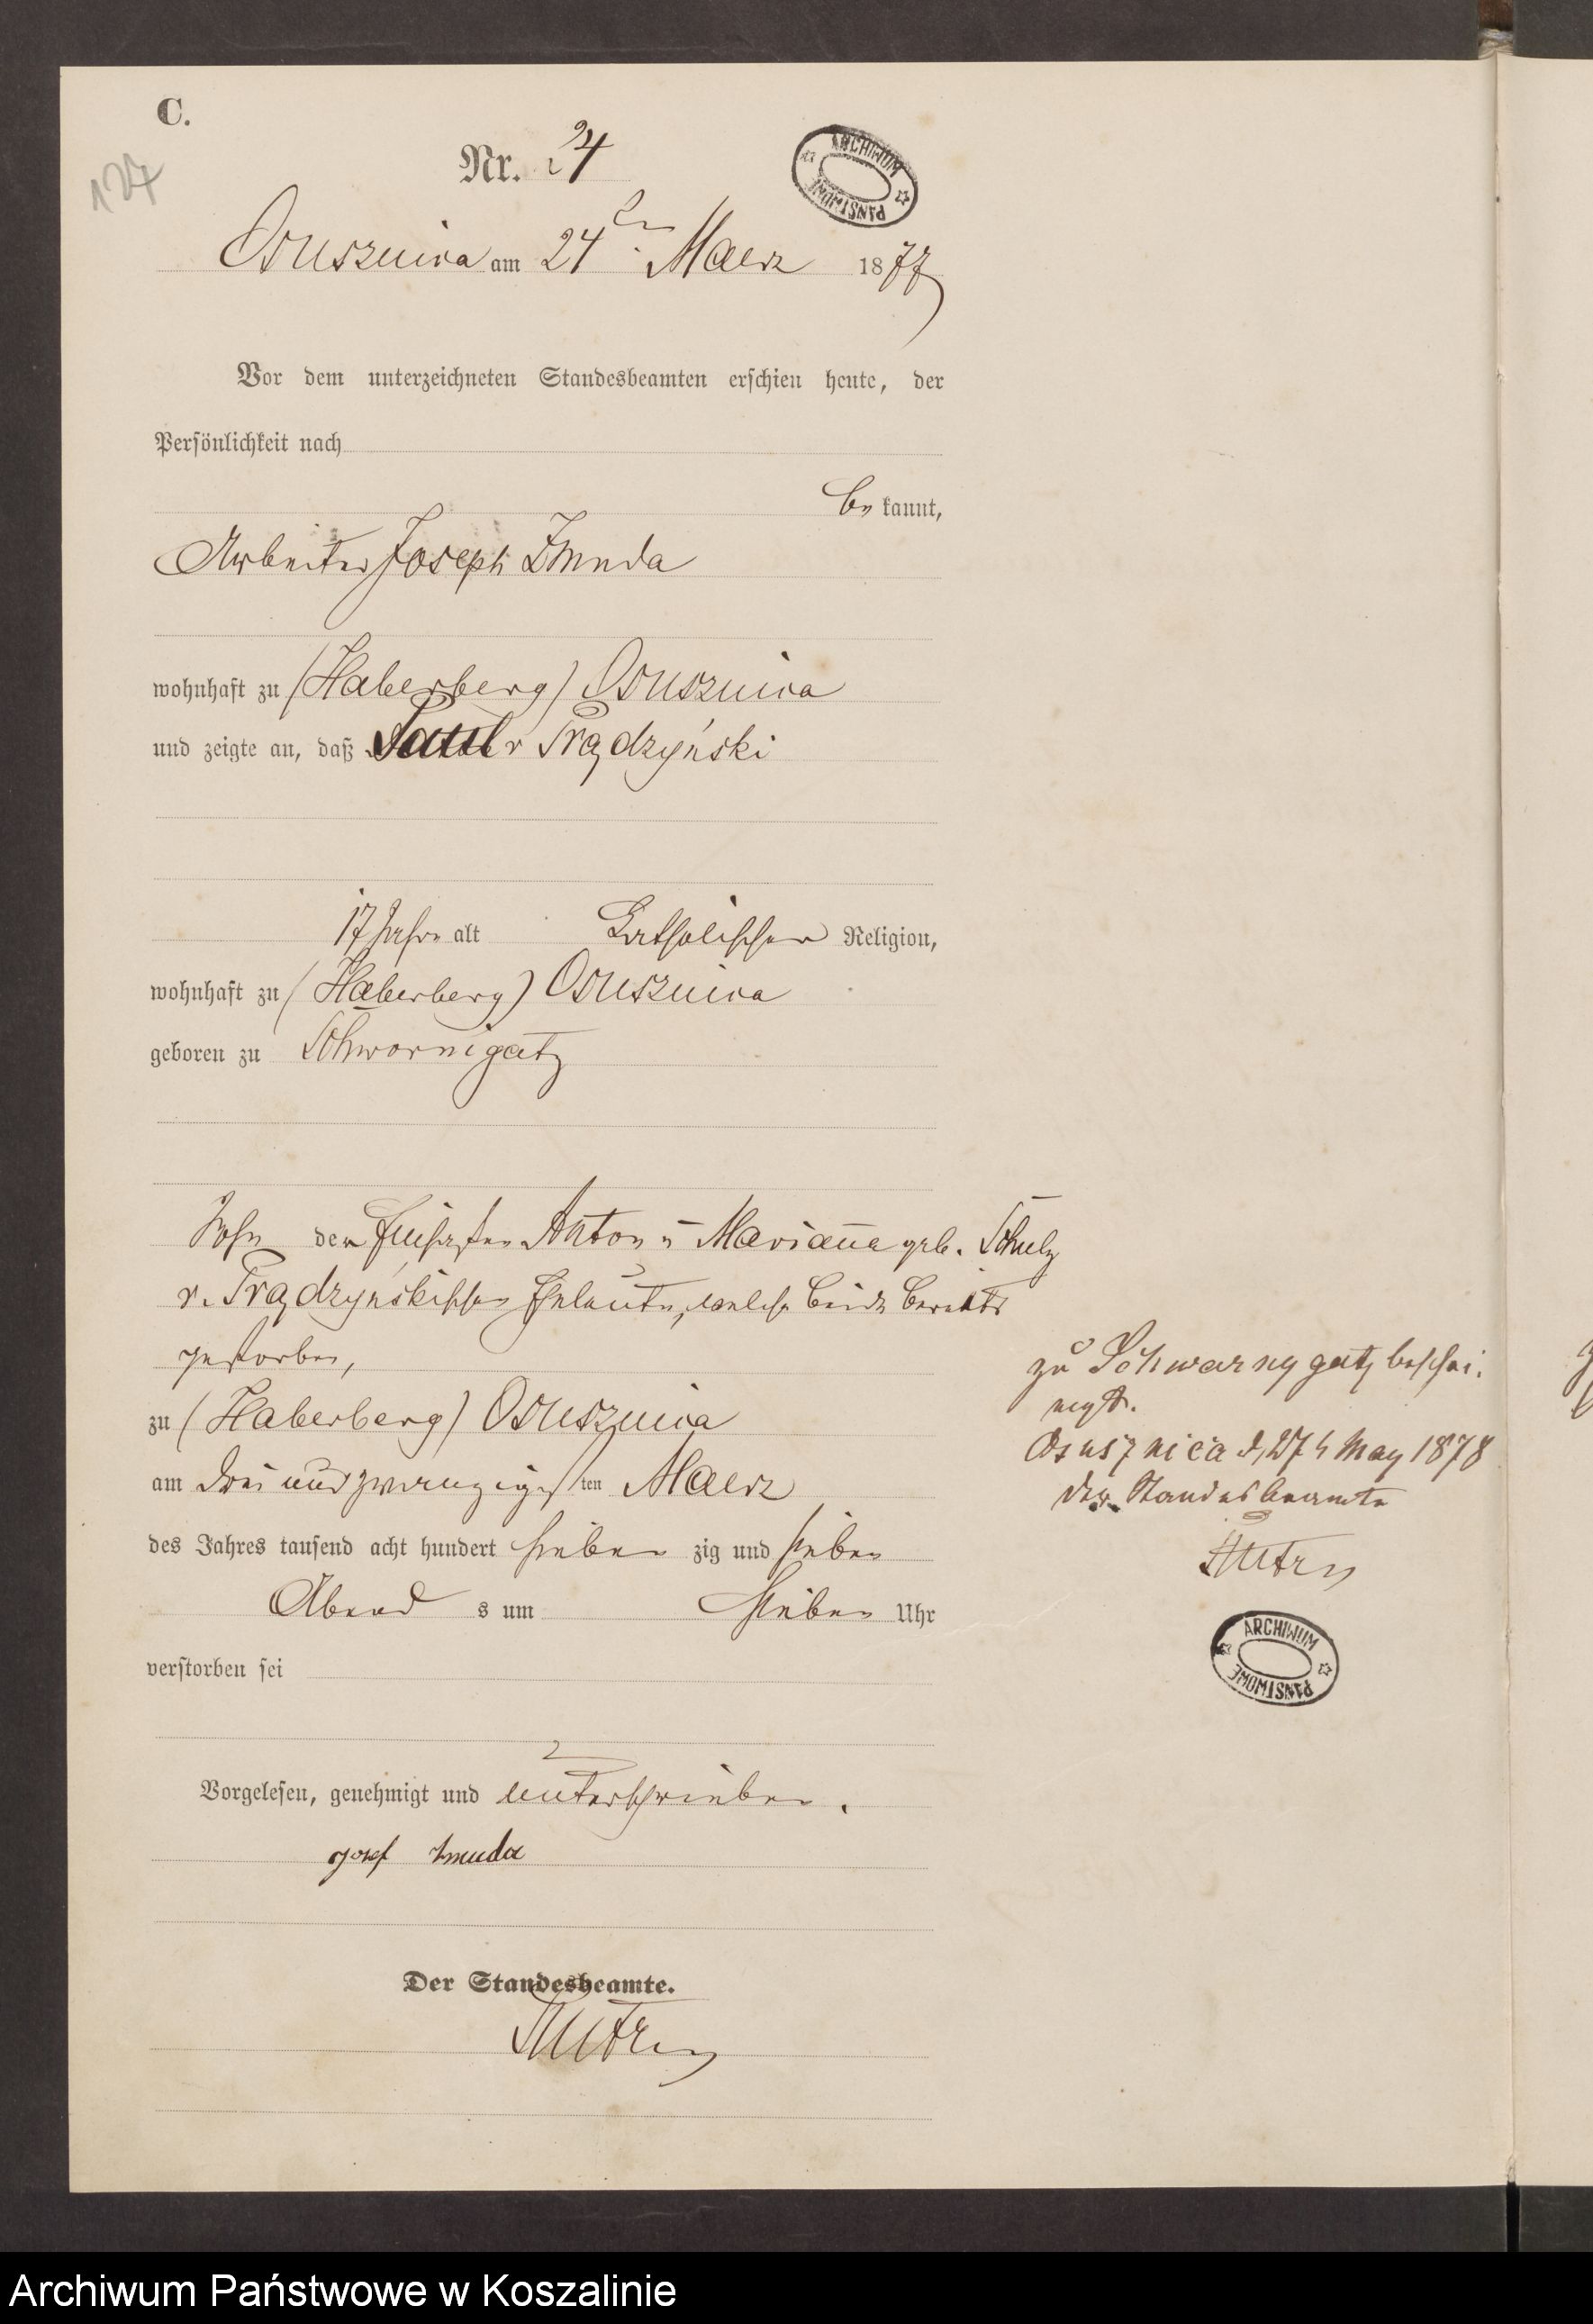 C.
127
Nr. 24
ARCHIWUM PAŃSTWOWE
Osusznica am 24ten Maerz 1877
Vor dem unterzeichneten Standesbeamten erschien heute, der
Persönlichkeit nach
be kannt,
Arbeiter Joseph Zmuda
wohnhaft zu (Haberberg) Osusznica
und zeigte an, daß Paul v Prądzyński
17 Jahre alt Katholischer Religion,
wohnhaft zu (Haberberg) Osusznica
geboren zu Schwornigatz
Sohn der Anton u Marianna geb. Schulz
v. Prądzyńskischen Eheleute, welche beide bereits
gestorben,
zu (Haberberg) Osusznica
am drei und zwanzigsten Maerz
des Jahres tausend acht hundert sieben zig und sieben
Abend s um sieben Uhr
verstorben sei
Vorgelesen, genehmigt und unterschrieben.
Josef Zmuda
Der Standesbeamte.
zu Schwarnygatz beschei-
nigt.
Osusznica d, 27 May 1878
der Standesbeamte
ARCHIWUM PAŃSTWOWE
Archiwum Państwowe w Koszalinie